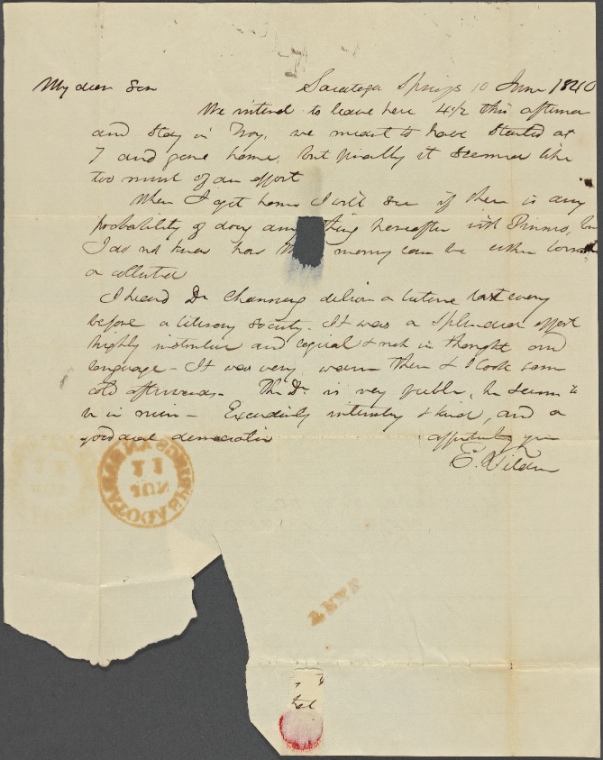 My dear Son Saratoga Springs 10 June 1840
We intend to leave here 4 1/2 this afternoon
and stay in Troy, we meant to have started at
7 and gone home, but finally it seemed like
too much of an effort
When I get home I will see if there is any
probability of doing any thing hereafter with
I do not know how money can be either
or collected
I heard Dr Channing deliver a lecture last eveng
before a literary society. It was a splendid effort
highly instructive and logical & rich in thought and
language - It was very warm there & I took some
cold afterwards. The Dr. is very feeble, he seems to
be in - Exceedingly interesting & kind, and a
good deal democratic affectionately your
E. Tilden
SARATOGA SPRINGS
JUN
11